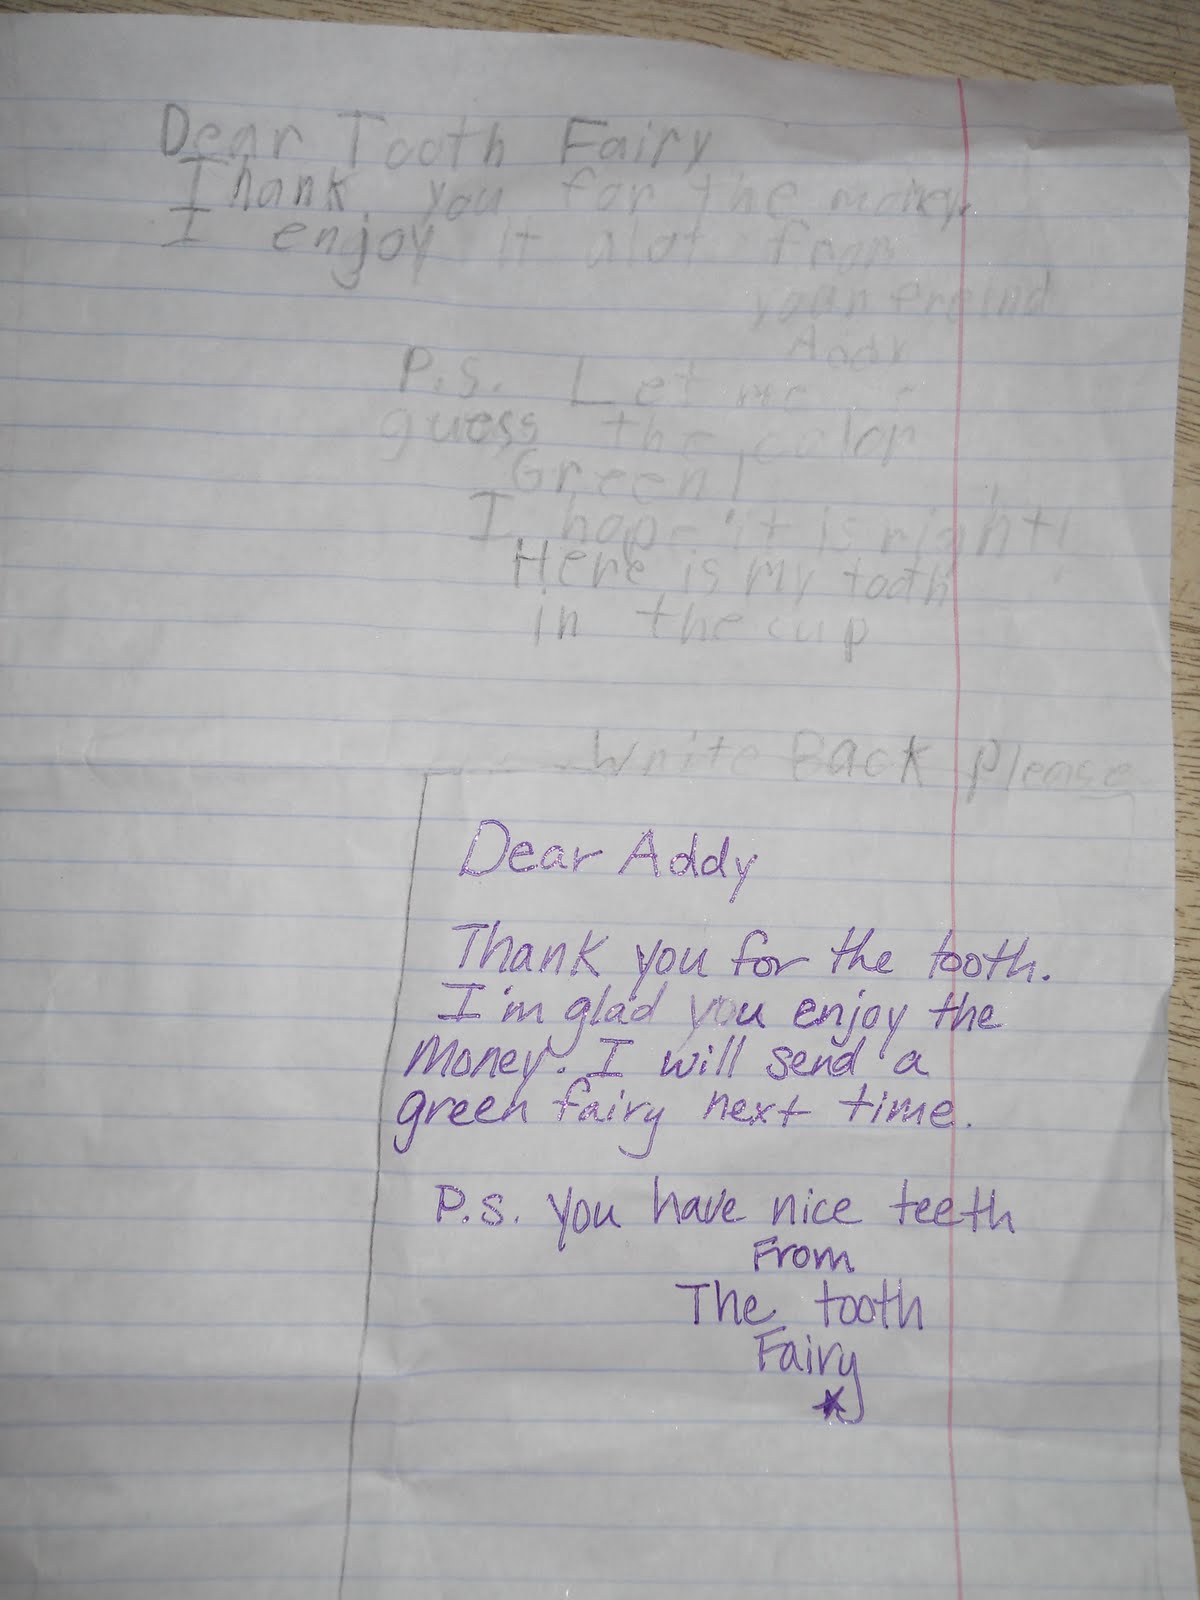 Dear Tooth Fairy
Thank you for the money.
I enjoy it alot from
your freind
Addy
P.S. Let me
guess the color
Green!
I hope it is right!
Here is my tooth
in the cup
Write Back Please
Dear Addy
Thank you for the tooth.
I'm glad you enjoy the
money. I will send a
green fairy next time.
P.S. you have nice teeth
From
The tooth
Fairy